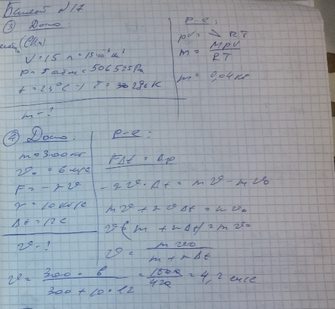 Билет №17
③ Дано
(CH₄)
V = 15 л = 15·10⁻³ м³
p = 5 атм = 506 525 Па
m - ?
Р-е:
pV = ν RT
m = MpV / RT
m = 0,04 кг
② Дано.
m = 300 кг
v₀ = 6 м/с
F = - r v
r = 10 кг/с
Δt = 12 с
v - ?
Р-е:
FΔt = Δp
- r v · Δt = m v - m v₀
m v + r v Δt = m v₀
v (m + r Δt) = m v₀
v = m v₀ / m + r Δt
v = 300 · 6 / 300 + 10 · 12 = 1800 / 420 = 4,2 м/с